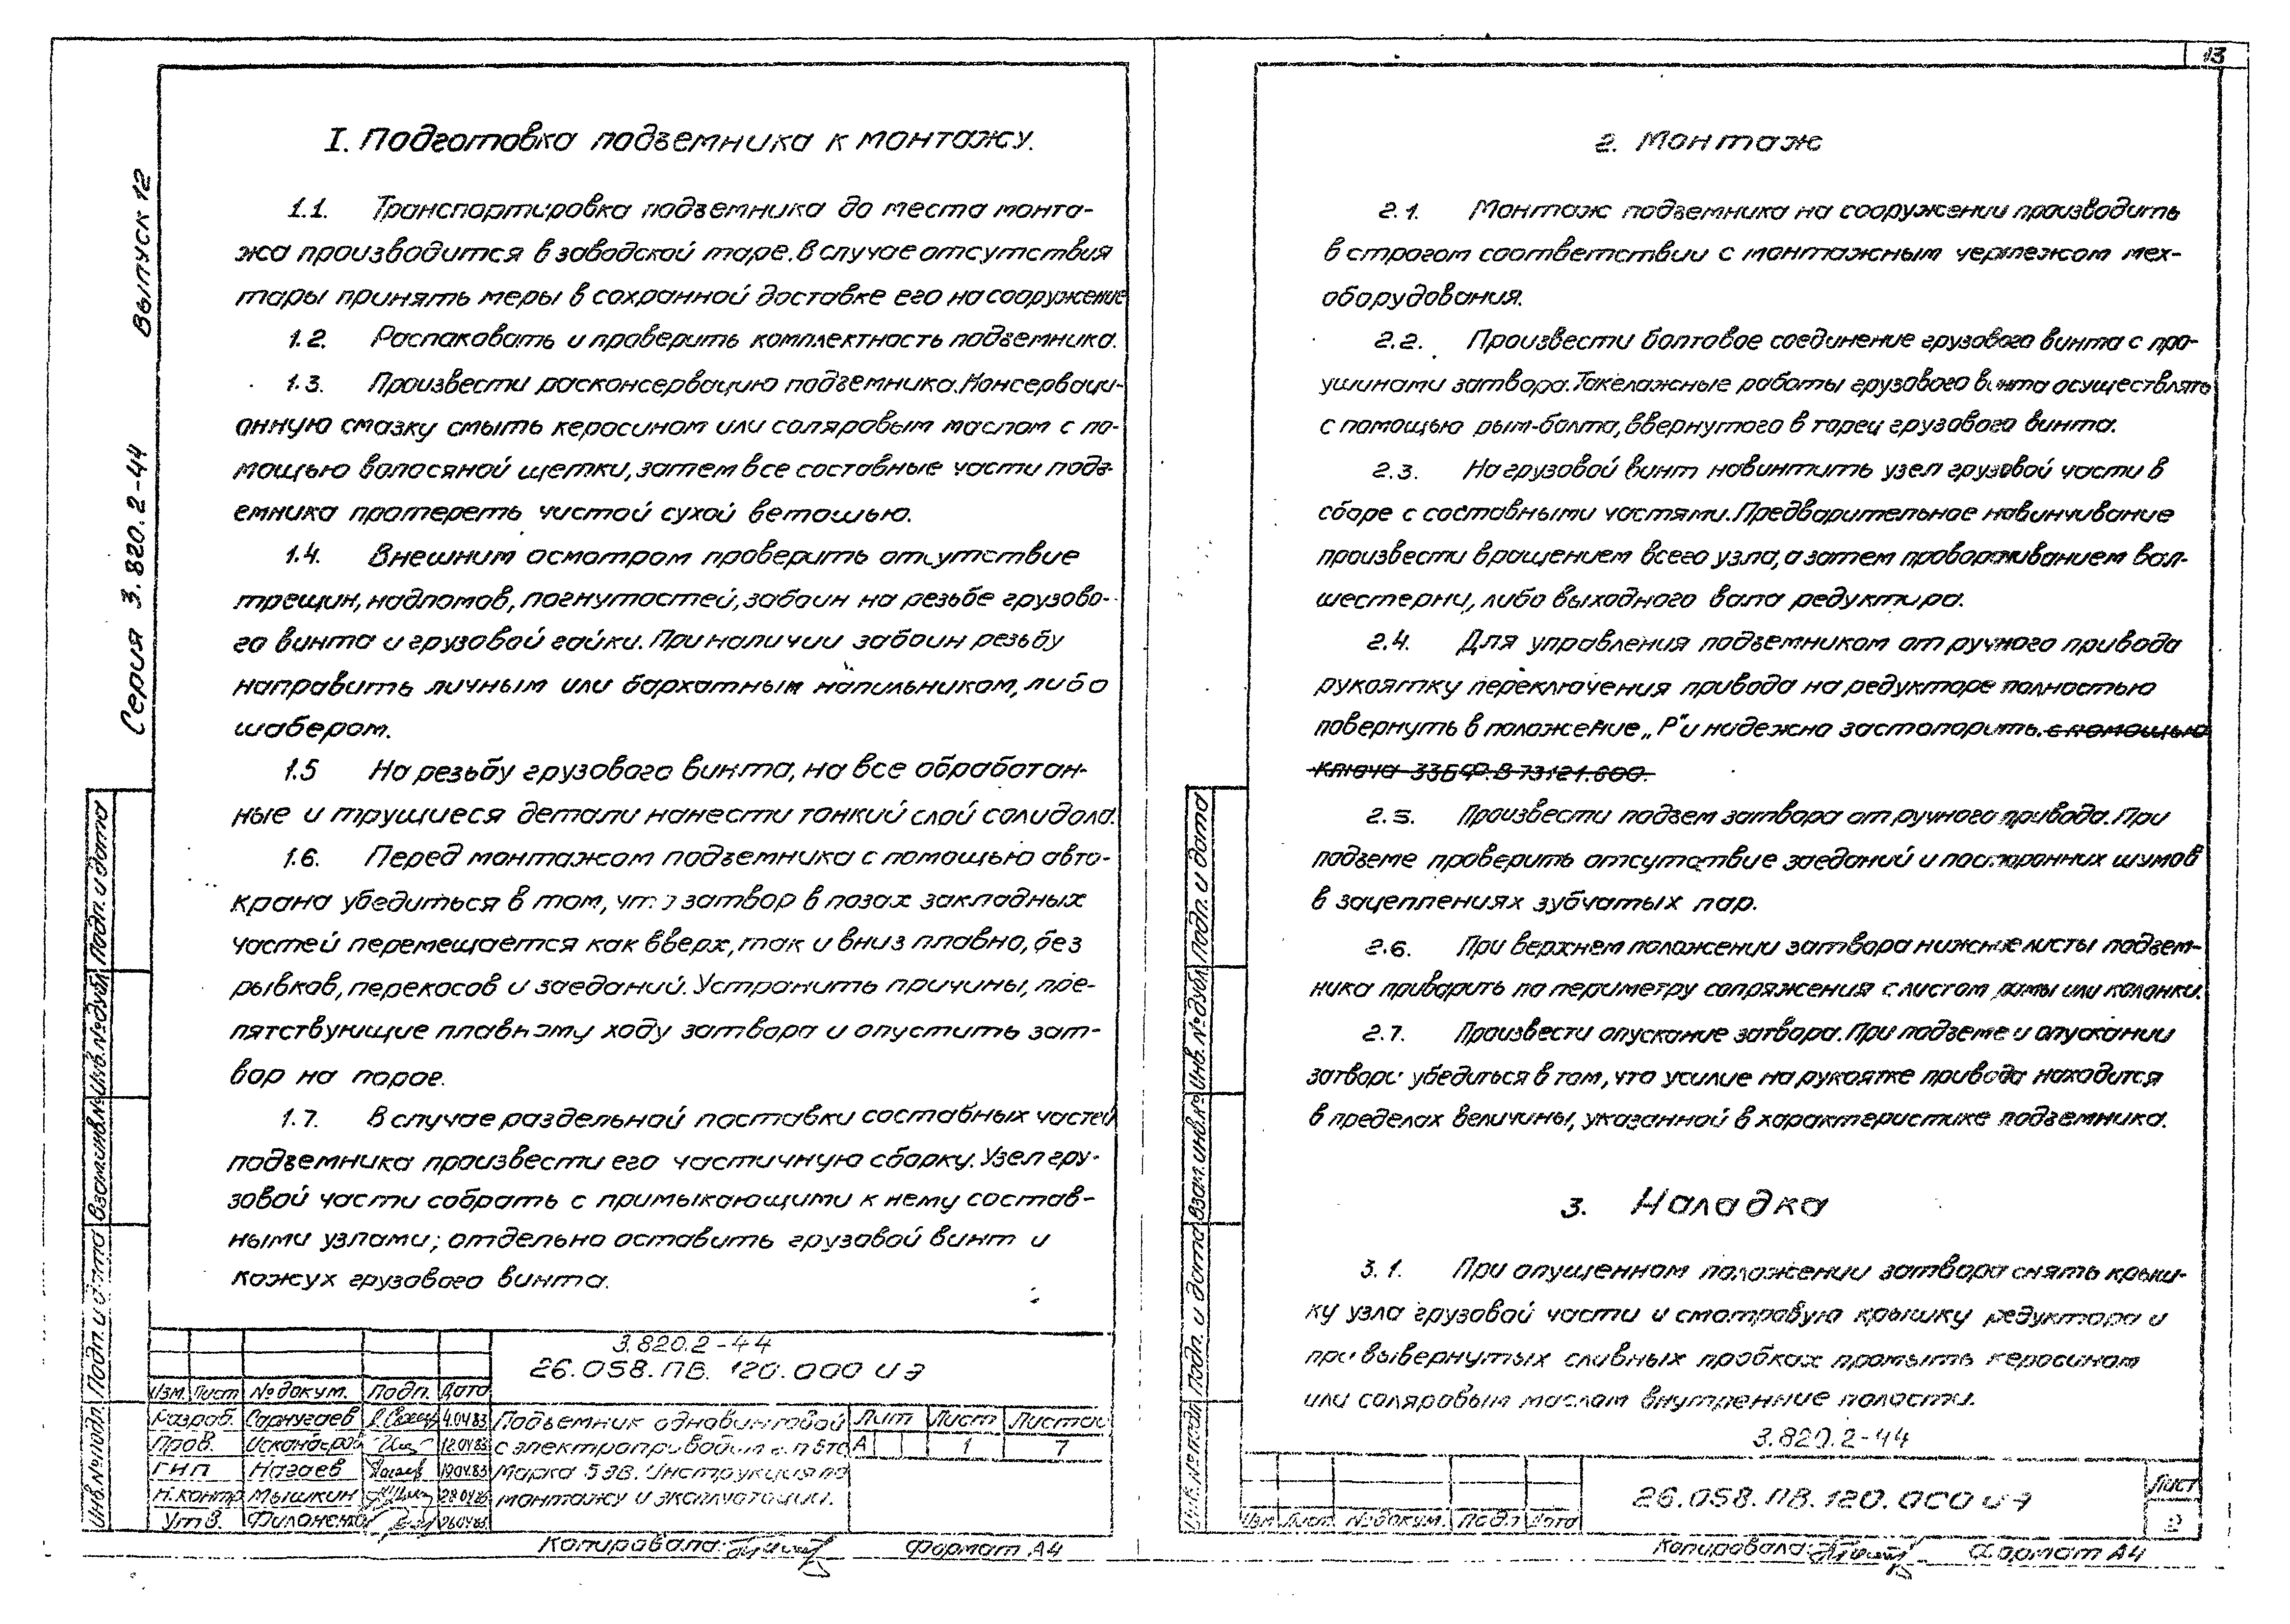 13
Серия 3.820.2-44 Выпуск 12
I. Подготовка подъемника к монтажу.
1.1. Транспортировка подъемника до места монта-
жа производится в заводской таре. В случае отсутствия
тары принять меры в сохранной доставке его на сооружение
1.2. Распаковать и проверить комплектность подъемника.
1.3. Произвести расконсервацию подъемника. Консерваци-
онную смазку смыть керосином или соляровым маслом с по-
мощью волосяной щетки, затем все составные части подъ-
емника протереть чистой сухой ветошью.
1.4. Внешним осмотром проверить отсутствие
трещин, надломов, погнутостей, забоин на резьбе грузово-
го винта и грузовой гайки. При наличии забоин резьбу
направить личным или бархатным напильником, либо
шабером.
1.5 На резьбу грузового винта, на все обработан-
ные и трущиеся детали нанести тонкий слой солидола.
1.6. Перед монтажом подъемника с помощью авто-
крана убедиться в том, что затвор в пазах закладных
частей перемещается как вверх, так и вниз плавно, без
рывков, перекосов и заеданий. Устранить причины, пре-
пятствующие плавному ходу затвора и опустить зат-
вор на порог.
1.7. В случае раздельной поставки составных частей
подъемника произвести его частичную сборку. Узел гру-
зовой части собрать с примыкающими к нему состав-
ными узлами; отдельно оставить грузовой винт и
кожух грузового винта.
3.820.2-44
26.058.ПВ.120.000 ИЭ
Изм. Лист № докум. Подп. Дата
Разраб. Сарнугаев 4.04.83
Пров. 12.04.83
ГНП Нагаев 19.04.83
Н.контр Мышкин
Утв. Филоненко
Подъемник одновинтовой
с электроприводом
Марка 5ЭВ. Инструкция по
монтажу и эксплуатации.
Лит Лист Листов
А 1 7
Копировала: Формат А4
Подп. и дата
Инв.№ дубл.
Взам.инв.№
Подп. и дата
Инв.№ подл.
2. Монтаж
2.1. Монтаж подъемника на сооружении производить
в строгом соответствии с монтажным чертежом мех-
оборудования.
2.2. Произвести болтовое соединение грузового винта с про-
ушинами затвора. Такелажные работы грузового винта осуществлять
с помощью рым-болта, ввернутого в торец грузового винта.
2.3. На грузовой винт навинтить узел грузовой части в
сборе с составными частями. Предварительное навинчивание
произвести вращением всего узла, а затем проворачиванием вал-
шестерни, либо выходного вала редуктора.
2.4. Для управления подъемником от ручного привода
рукоятку переключения привода на редукторе полностью
повернуть в положение „Р" и надежно застопорить. с помощью
ключа 33БФ.В 73.121.600.
2.5. Произвести подъем затвора от ручного привода. При
подъеме проверить отсутствие заеданий и посторонних шумов
в зацеплениях зубчатых пар.
2.6. При верхнем положении затвора нижние листы подъем-
ника приварить по периметру сопряжения с листом рамы или колонки.
2.7. Произвести опускание затвора. При подъеме и опускании
затвора убедиться в том, что усилие на рукоятке привода находится
в пределах величины, указанной в характеристике подъемника.
3. Наладка
3.1. При опущенном положении затвора снять крыш-
ку узла грузовой части и смотровую крышку редуктора и
при вывернутых сливных пробках промыть керосином
или соляровым маслом внутренние полости.
3.820.2-44
26.058.ПВ.120.000 ИЭ
Изм Лист № докум. Подп Дата
Лист
2
Копировала: Формат А4
Подп. и дата
Инв.№ дубл.
Взам.инв.№
Подп. и дата
Инв.№ подл